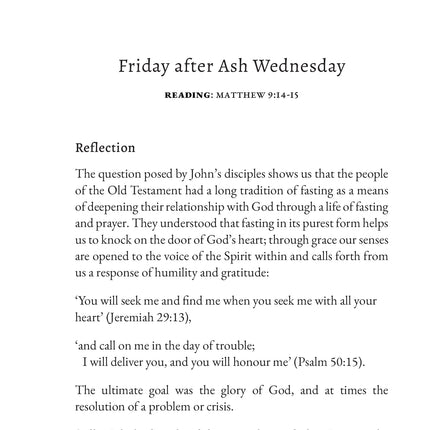 Friday after Ash Wednesday
READING: MATTHEW 9:14-15
Reflection
The question posed by John’s disciples shows us that the people
of the Old Testament had a long tradition of fasting as a means
of deepening their relationship with God through a life of fasting
and prayer. They understood that fasting in its purest form helps
us to knock on the door of God’s heart; through grace our senses
are opened to the voice of the Spirit within and calls forth from
us a response of humility and gratitude:
‘You will seek me and find me when you seek me with all your
heart’ (Jeremiah 29:13),
‘and call on me in the day of trouble;
I will deliver you, and you will honour me’ (Psalm 50:15).
The ultimate goal was the glory of God, and at times the
resolution of a problem or crisis.